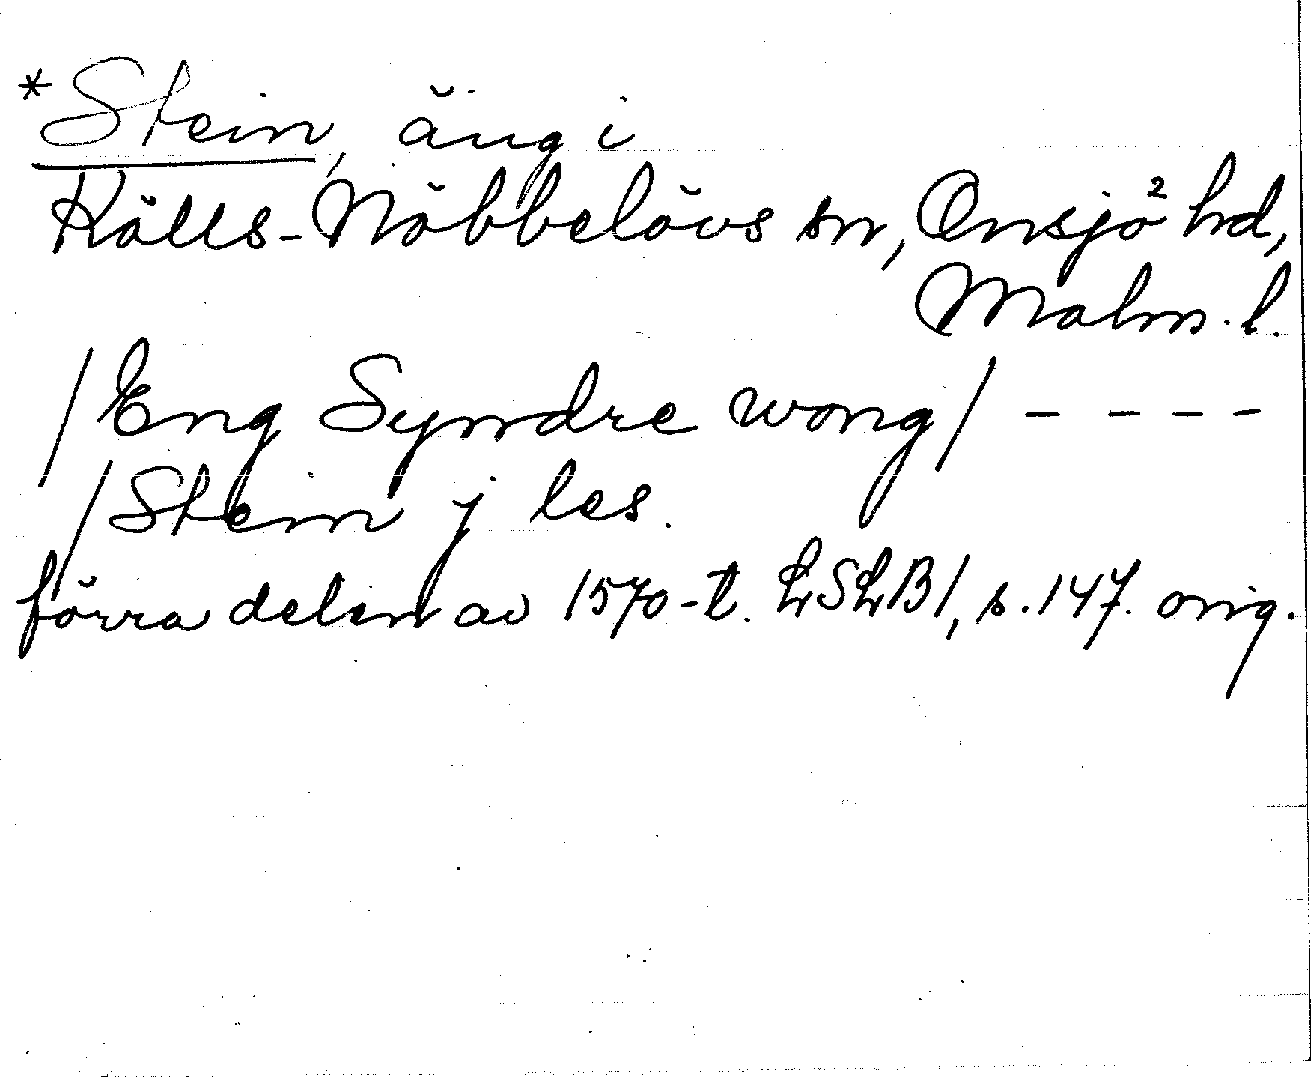 *Stein, äng i
Källs-Nöbbelövs sn, Onsjö² hd,
Malm. l.
/Eng Syndre wong/ - - - -
/Stein j les.
förra delen av 1570-t. LSLB1, s. 147. orig.